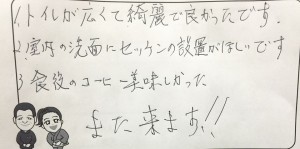 1. トイレが広くて綺麗で良かったです.
2. 室内の洗面にセッケンの設置がほしいです
3 食後のコーヒー美味しかった
また来ます!!